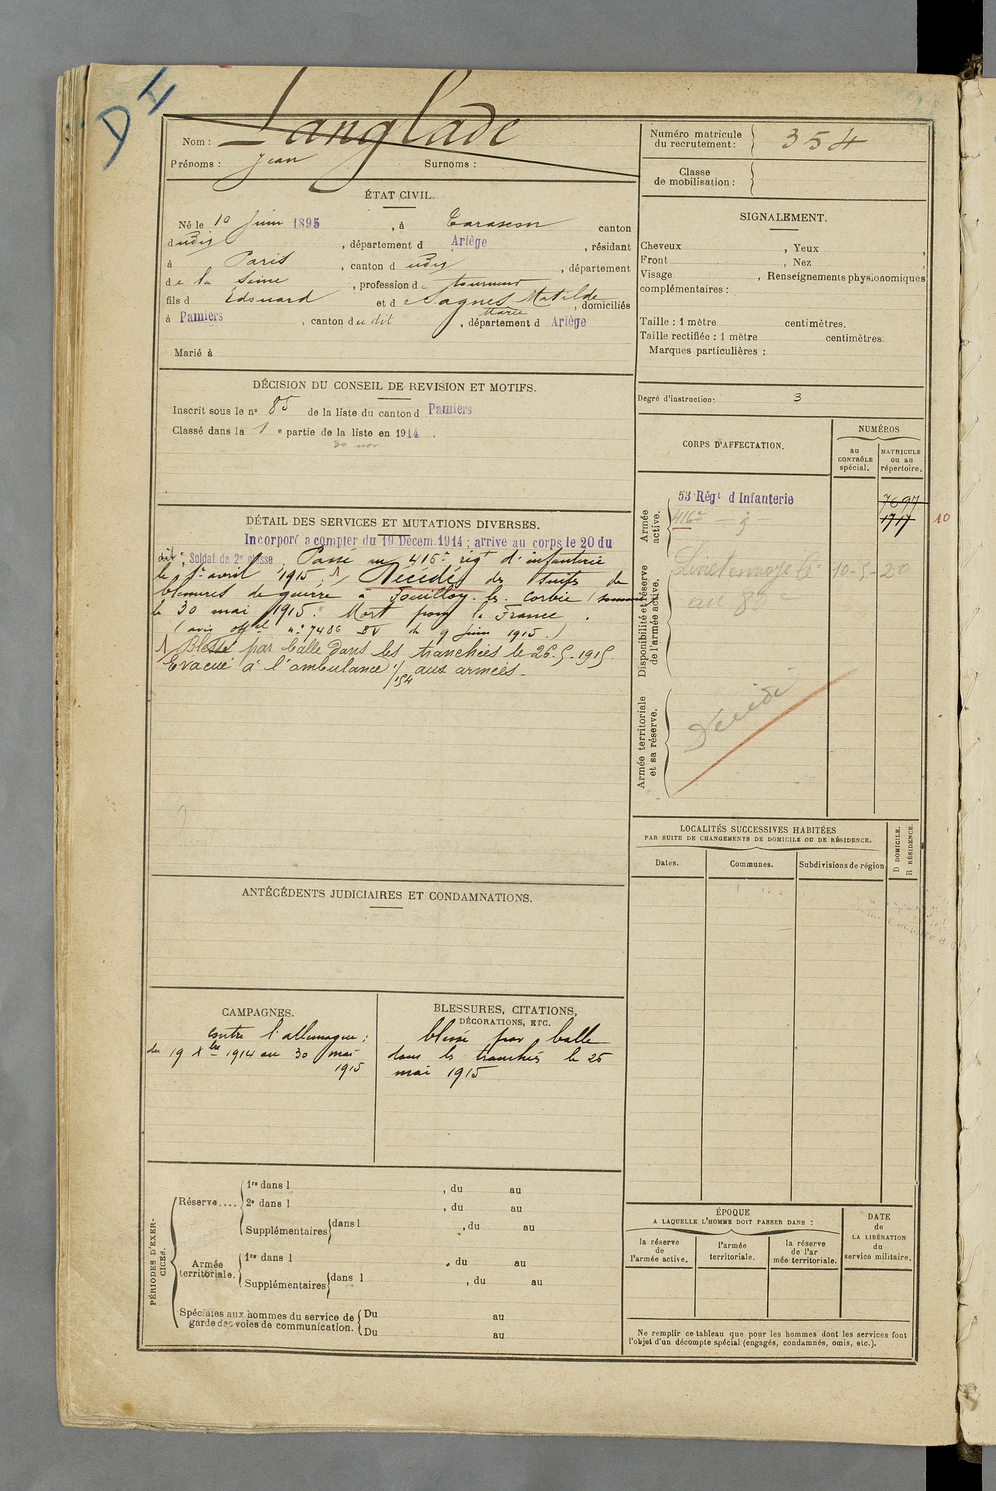 D I
Nom : Langlade
Prénoms : Jean Surnoms :
Numéro matricule
du recrutement : 354
Classe
de mobilisation :
ÉTAT CIVIL.
Né le 10 Juin 1895, à Tarascon canton
dudit, département d Ariège, résidant
à Paris, canton d udit, département
de la Seine, profession de tourneur
fils d Edouard et d e Sagnes Matilde, domiciliés
Marie
à Pamiers, canton du dit, département d Ariège
Marié à
SIGNALEMENT.
Cheveux , Yeux ,
Front , Nez ,
Visage , Renseignements physionomiques
complémentaires :
Taille : 1 mètre centimètres.
Taille rectifiée : 1 mètre centimètres.
Marques particulières :
Degré d'instruction : 3
DÉCISION DU CONSEIL DE REVISION ET MOTIFS.
Inscrit sous le n° 85 de la liste du canton d Pamiers
Classé dans la 1 e partie de la liste en 1914.
DÉTAIL DES SERVICES ET MUTATIONS DIVERSES.
Incorporé à compter du 19 Décem. 1914 ; arrivé au corps le 20 du
dit, Soldat de 2e classe, Passé au 416e régt d'infanterie
le 1er avril 1915. 1 Décédé des suites de
blessures de guerre à Fouilloy-les-Corbie (Somme)
le 30 mai 1915. Mort pour la France.
(avis offel n° 7486 du 9 juin 1915.)
1 Blessé par balle dans les tranchées le 26-5-1915
Evacué à l'ambulance 1/154 aux armées.
CORPS D'AFFECTATION.
NUMÉROS
au
CONTRÔLE
spécial.
MATRICULE
ou au
répertoire.
Armée
active.
53 Régt d'Infanterie 7697
416e 1717 10
Disponibilité et réserve
de l'armée active.
10-5-20
Armée territoriale
et sa réserve.
Décédé
LOCALITÉS SUCCESSIVES HABITÉES
PAR SUITE DE CHANGEMENTS DE DOMICILE OU DE RÉSIDENCE.
D DOMICILE.
R RÉSIDENCE.
Dates. Communes. Subdivisions de région
ANTÉCÉDENTS JUDICIAIRES ET CONDAMNATIONS.
CAMPAGNES.
contre l'allemagne ;
du 19 Xbre 1914 au 30 mai
1915
BLESSURES, CITATIONS,
DÉCORATIONS, ETC.
blessé par balle
dans les tranchées le 26
mai 1915
PÉRIODES D'EXER-
CICES.
Réserve....
1re dans l , du au
2e dans l , du au
Supplémentaires dans l , du au
Armée
territoriale.
1re dans l , du au
Supplémentaires dans l , du au
Spéciales aux hommes du service de
garde des voies de communication.
Du au
Du au
ÉPOQUE
A LAQUELLE L'HOMME DOIT PASSER DANS :
la réserve
de
l'armée active.
l'armée
territoriale.
la réserve
de l'ar
mée territoriale.
DATE
de
LA LIBÉRATION
du
service militaire.
Ne remplir ce tableau que pour les hommes dont les services font
l'objet d'un décompte spécial (engagés, condamnés, omis, etc.).